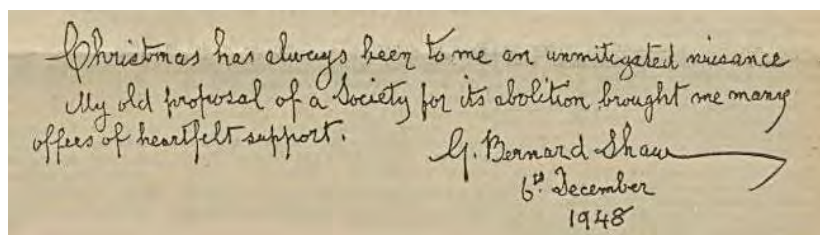 Christmas has always been to me an unmitigated nuisance
My old proposal of a Society for its abolition brought me many
offers of heartfelt support.
G. Bernard Shaw
6th December
1948